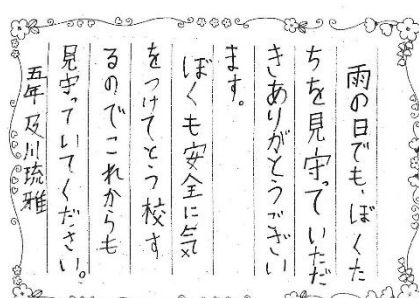 雨の日でも、ぼくた
ちを見守っていただ
きありがとうござい
ます。
ぼくも安全に気
をつけてとう校す
るのでこれからも
見守っていてください。
五年 及川琉雅